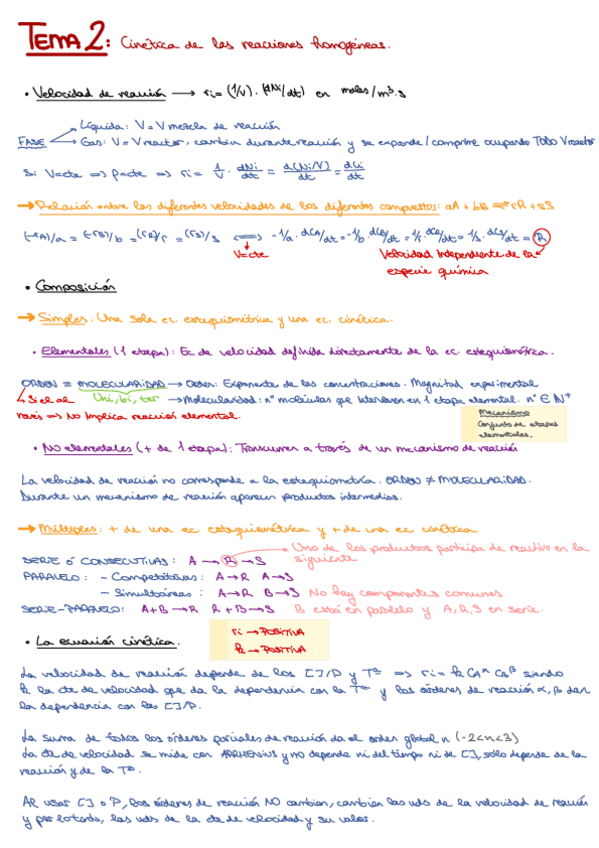 TEMA 2: Cinética de las reacciones homogéneas.
• Velocidad de reacción → ri = (1/V) · (dNi/dt) en moles/m³·s
Líquida: V = V mezcla de reacción
FASE
Gas: V = V reactor, cambia durante reacción y se expande/comprime ocupando TODO V reactor
Si V=cte ⇒ ρ=cte ⇒ ri = 1/V · dNi/dt = d(Ni/V)/dt = dCi/dt
→ Relación entre las diferentes velocidades de los diferentes compuestos: aA + bB ⇌ rR + sS
(-rA)/a = (-rB)/b = (rR)/r = (rS)/s ⟺ -1/a · dCA/dt = -1/b · dCB/dt = 1/r · dCR/dt = 1/s · dCS/dt = R
V=cte
Velocidad independiente de la
especie química
• Composición
→ Simples: Una sola ec. estequiométrica y una ec. cinética.
• Elementales (1 etapa): Ec de velocidad definida directamente de la ec. estequiométrica.
ORDEN = MOLECULARIDAD → Orden: Exponente de las concentraciones. Magnitud experimental
↳ Si el al Uni, bi, ter → Molecularidad: nº moléculas que intervienen en 1 etapa elemental. nº ∈ N⁺
revés ⇒ No implica reacción elemental.
Mecanismo
Conjunto de etapas
elementales.
• NO elementales (+ de 1 etapa): Transcurren a través de un mecanismo de reacción
La velocidad de reacción no corresponde a la estequiometría. ORDEN ≠ MOLECULARIDAD.
Durante un mecanismo de reacción aparecen productos intermedios.
→ Múltiples: + de una ec estequiométrica y + de una ec cinética
Uno de los productos participa de reactivo en la
siguiente
SERIE ó CONSECUTIVAS: A → R → S
PARALELO: - Competitivas: A→R A→S
- Simultáneas: A→R B→S No hay componentes comunes
SERIE-PARALELO: A+B → R R+B → S B está en paralelo y A,R,S en serie.
• La ecuación cinética.
ri → POSITIVA
k → POSITIVA
La velocidad de reacción depende de las []/P y Tª ⇒ ri = k CA^α CB^β siendo
k la cte de velocidad que da la dependencia con la Tª y los órdenes de reacción α, β dan
la dependencia con las []/P.
La suma de todos los órdenes parciales de reacción da el orden global n (-2<n<3)
La cte de velocidad se mide con ARRHENIUS y no depende ni del tiempo ni de [], sólo depende de la
reacción y de la Tª.
Al usar [] o P, los órdenes de reacción NO cambian, cambian las uds de la velocidad de reacción
y por lo tanto, las uds de la cte de velocidad y su valor.